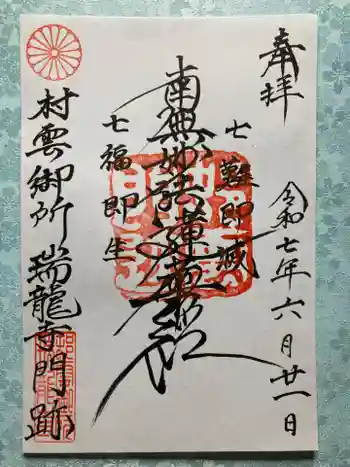 奉拝
令和七年六月廿一日
七難即滅
南無妙法蓮華経
七福即生
村雲御所瑞龍寺門跡